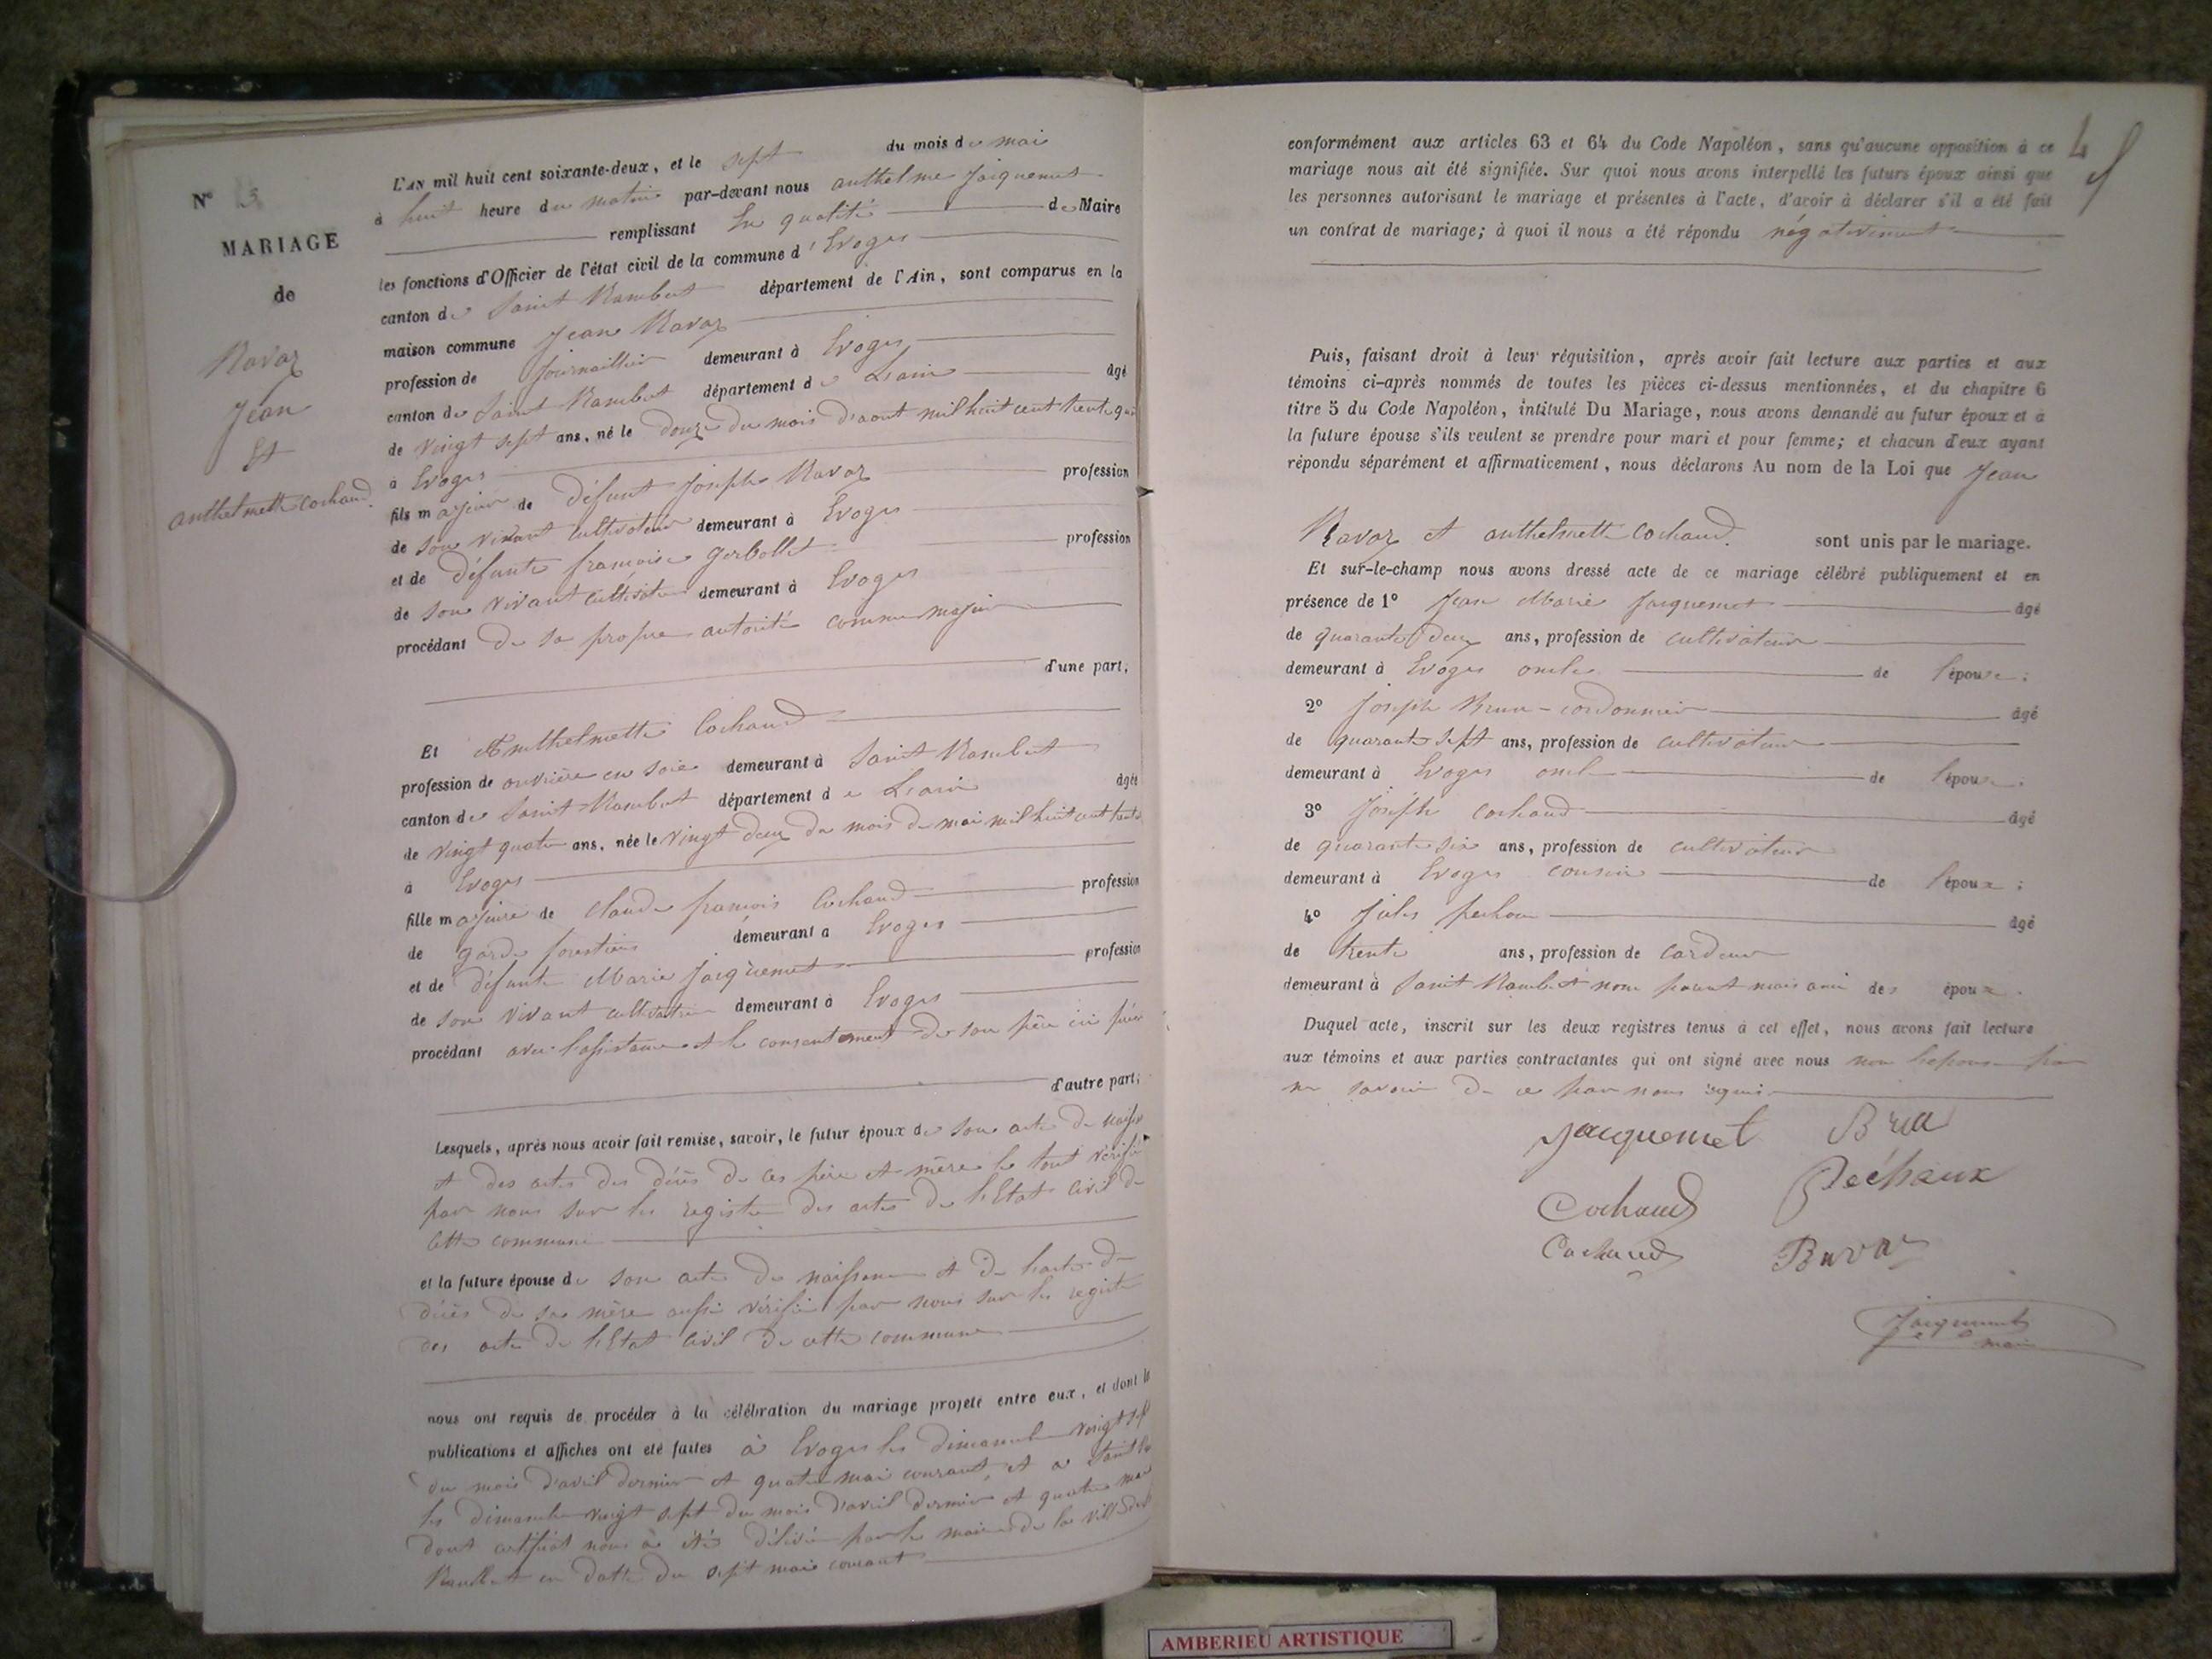 N° 3
MARIAGE
de
Ravaz
Jean
Et
anthelmette cochaud.
L'AN mil huit cent soixante-deux, et le sept du mois de mai
à huit heure du matin par-devant nous anthelme Jacquemet
remplissant En qualité de Maire
les fonctions d'Officier de l'état civil de la commune d'Evoges
canton de Saint Rambert département de l'Ain, sont comparus en la
maison commune Jean Ravaz
profession de journaillier demeurant à Evoges
canton de Saint Rambert département de Lain âgé
de vingt sept ans, né le douze du mois d'aout mil huit cent trente
à Evoges
fils majeur de défunt Joseph Ravaz profession
de son vivant cultivateur demeurant à Evoges
et de défunte francoise gorbollet profession
de son vivant cultivatrice demeurant à Evoges
procédant de sa propre autorité comme majeur
d'une part,
Et Anthelmette Cochaud
profession de ouvrière en soie demeurant à Saint Rambert
canton de Saint Rambert département de Lain âgée
de vingt quatre ans, née le vingt deux du mois de mai mil huit cent trente
à Evoges
fille majeure de claude francois Cochaud profession
de garde forestier demeurant à Evoges
et de défunte Marie Jacquemet profession
de son vivant cultivatrice demeurant à Evoges
procédant avec l'assistance et le consentement de son père ici présent
d'autre part;
Lesquels, après nous avoir fait remise, savoir, le futur époux de son acte de naiss
et des actes des décès de ces père et mère le tout vérifié
par nous sur les registre des actes de l'Etat Civil de
cette commune
et la future épouse de son acte de naissance et de l'acte de
décès de sa mère aussi vérifié par nous sur les registre
des acte de l'Etat Civil de cette commune
nous ont requis de procéder à la célébration du mariage projeté entre eux, et dont les
publications et affiches ont été faites à Evoges les dimanche vingt sept
du mois d'avril dernier et quatre mai courant, et a Saint
les dimanche vingt sept du mois d'avril dernier et quatre mai
dont certificat nous a été délivré par le maire de la ville de
Rambert en datte du sept mai courant
4
conformément aux articles 63 et 64 du Code Napoléon, sans qu'aucune opposition à ce
mariage nous ait été signifiée. Sur quoi nous avons interpellé les futurs époux ainsi que
les personnes autorisant le mariage et présentes à l'acte, d'avoir à déclarer s'il a été fait
un contrat de mariage; à quoi il nous a été répondu négativement
Puis, faisant droit à leur réquisition, après avoir fait lecture aux parties et aux
témoins ci-après nommés de toutes les pièces ci-dessus mentionnées, et du chapitre 6
titre 5 du Code Napoléon, intitulé Du Mariage, nous avons demandé au futur époux et à
la future épouse s'ils veulent se prendre pour mari et pour femme; et chacun d'eux ayant
répondu séparément et affirmativement, nous déclarons Au nom de la Loi que Jean
Ravaz et anthelmette Cochaud. sont unis par le mariage.
Et sur-le-champ nous avons dressé acte de ce mariage célébré publiquement et en
présence de 1° Jean Marie Jacquemet âgé
de quarante deux ans, profession de cultivateur
demeurant à Evoges oncle de l'épouse;
2° Joseph Brun-cordonnier âgé
de quarante sept ans, profession de cultivateur
demeurant à Evoges oncle de l'épouse.
3° Joseph cochaud âgé
de quarante six ans, profession de cultivateur
demeurant à Evoges cousin de l'époux;
4° Jules âgé
de trente ans, profession de cardeur
demeurant à Saint Rambert non parent mais ami des époux.
Duquel acte, inscrit sur les deux registres tenus à cet effet, nous avons fait lecture
aux témoins et aux parties contractantes qui ont signé avec nous non l'epouse pour
ne savoir de ce par nous requis
Jacquemet
Péchaux
Cochaud
Cochaud
Jacquemet
maire
AMBERIEU ARTISTIQUE